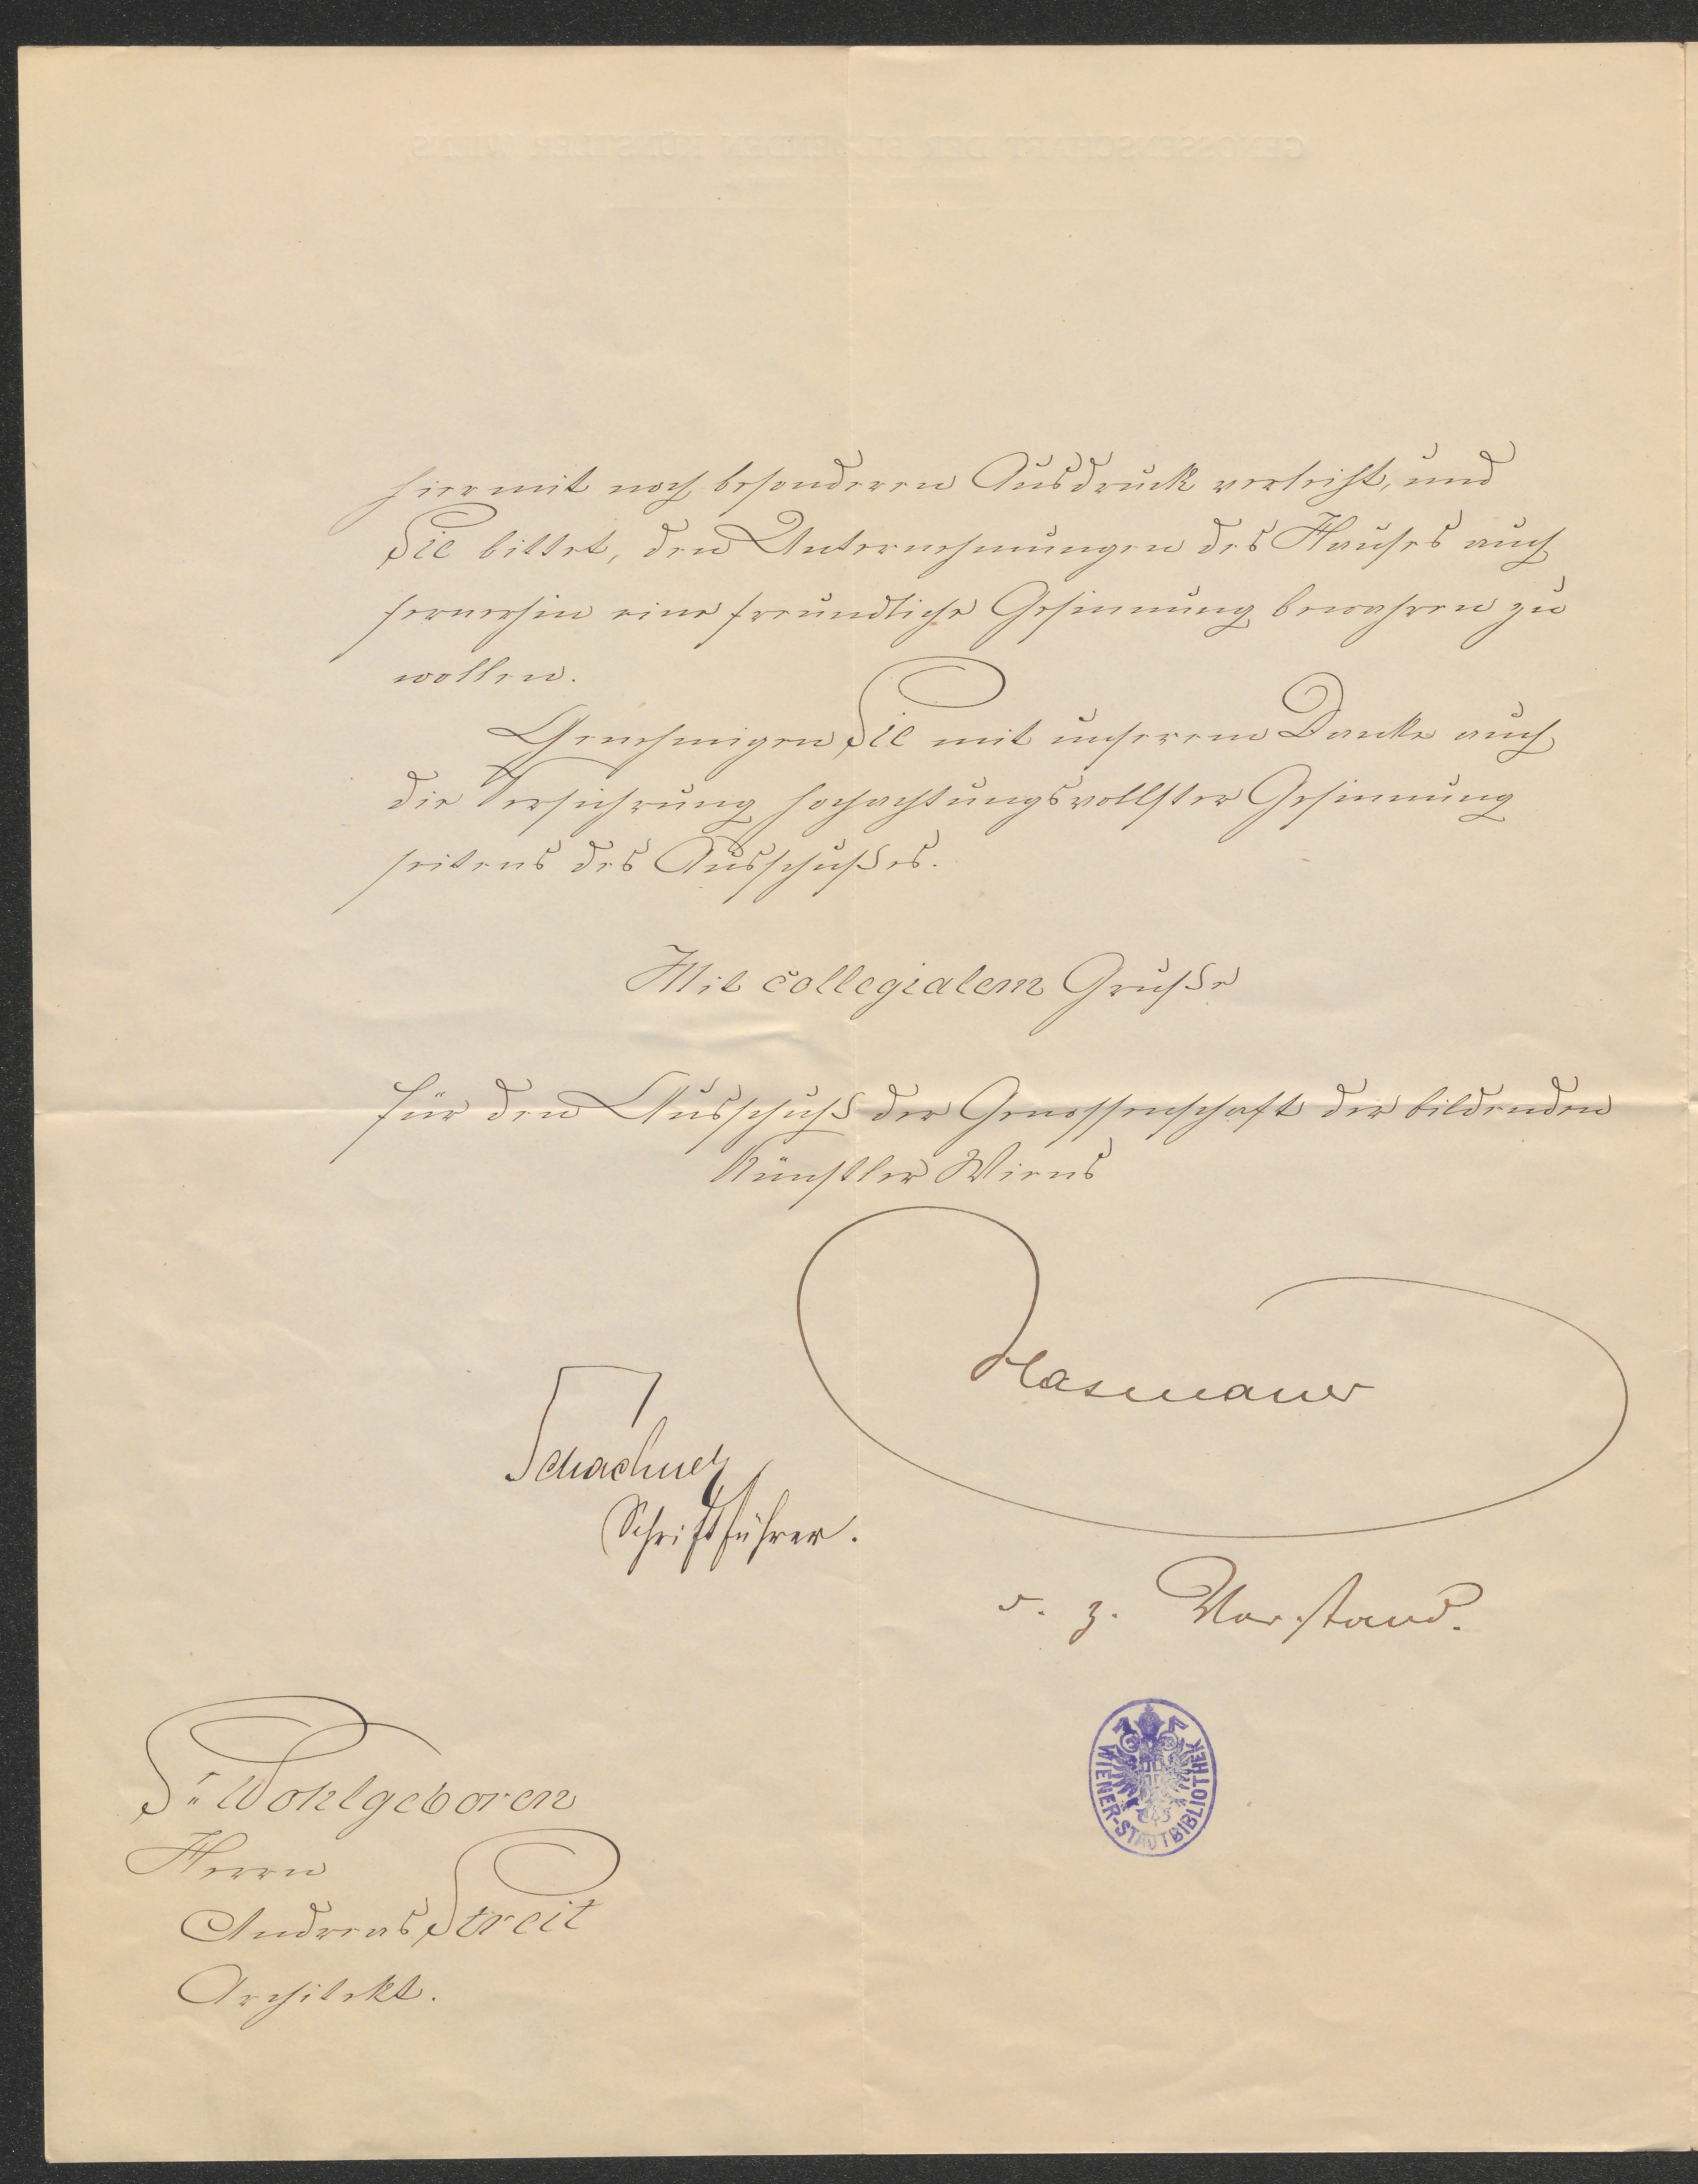 hiermit noch besonderen Ausdruck verleiht, und
Sie bittet, den Unternehmungen des Hauses auch
fernerhin eine freundliche Gesinnung bewahren zu
wollen.
Genehmigen Sie mit unserem Danke auch
die Versicherung hochachtungsvollster Gesinnung
seitens des Ausschußes.
Mit collegialem Gruße
für den Ausschuß der Genossenschaft der bildenden
Künstler Wiens
Hasenauer
Schachner
Schriftführer.
d. z. Vorstand.
Sr Wohlgeboren
Herrn
Andreas Streit
Architekt.
WIENER-STADTBIBLIOTHEK
GENOSSENSCHAFT DER BILDENDEN KÜNSTLER WIEN'S